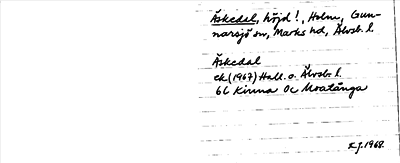 Äskedal, höjd!, Holm, Gun-
narsjö sn, Marks hd, Älvsb. l.
Äskedal
ek (1967) Hall. o. Älvsb. l.
6b Kinna Oc Moatånga
x.j. 1968.